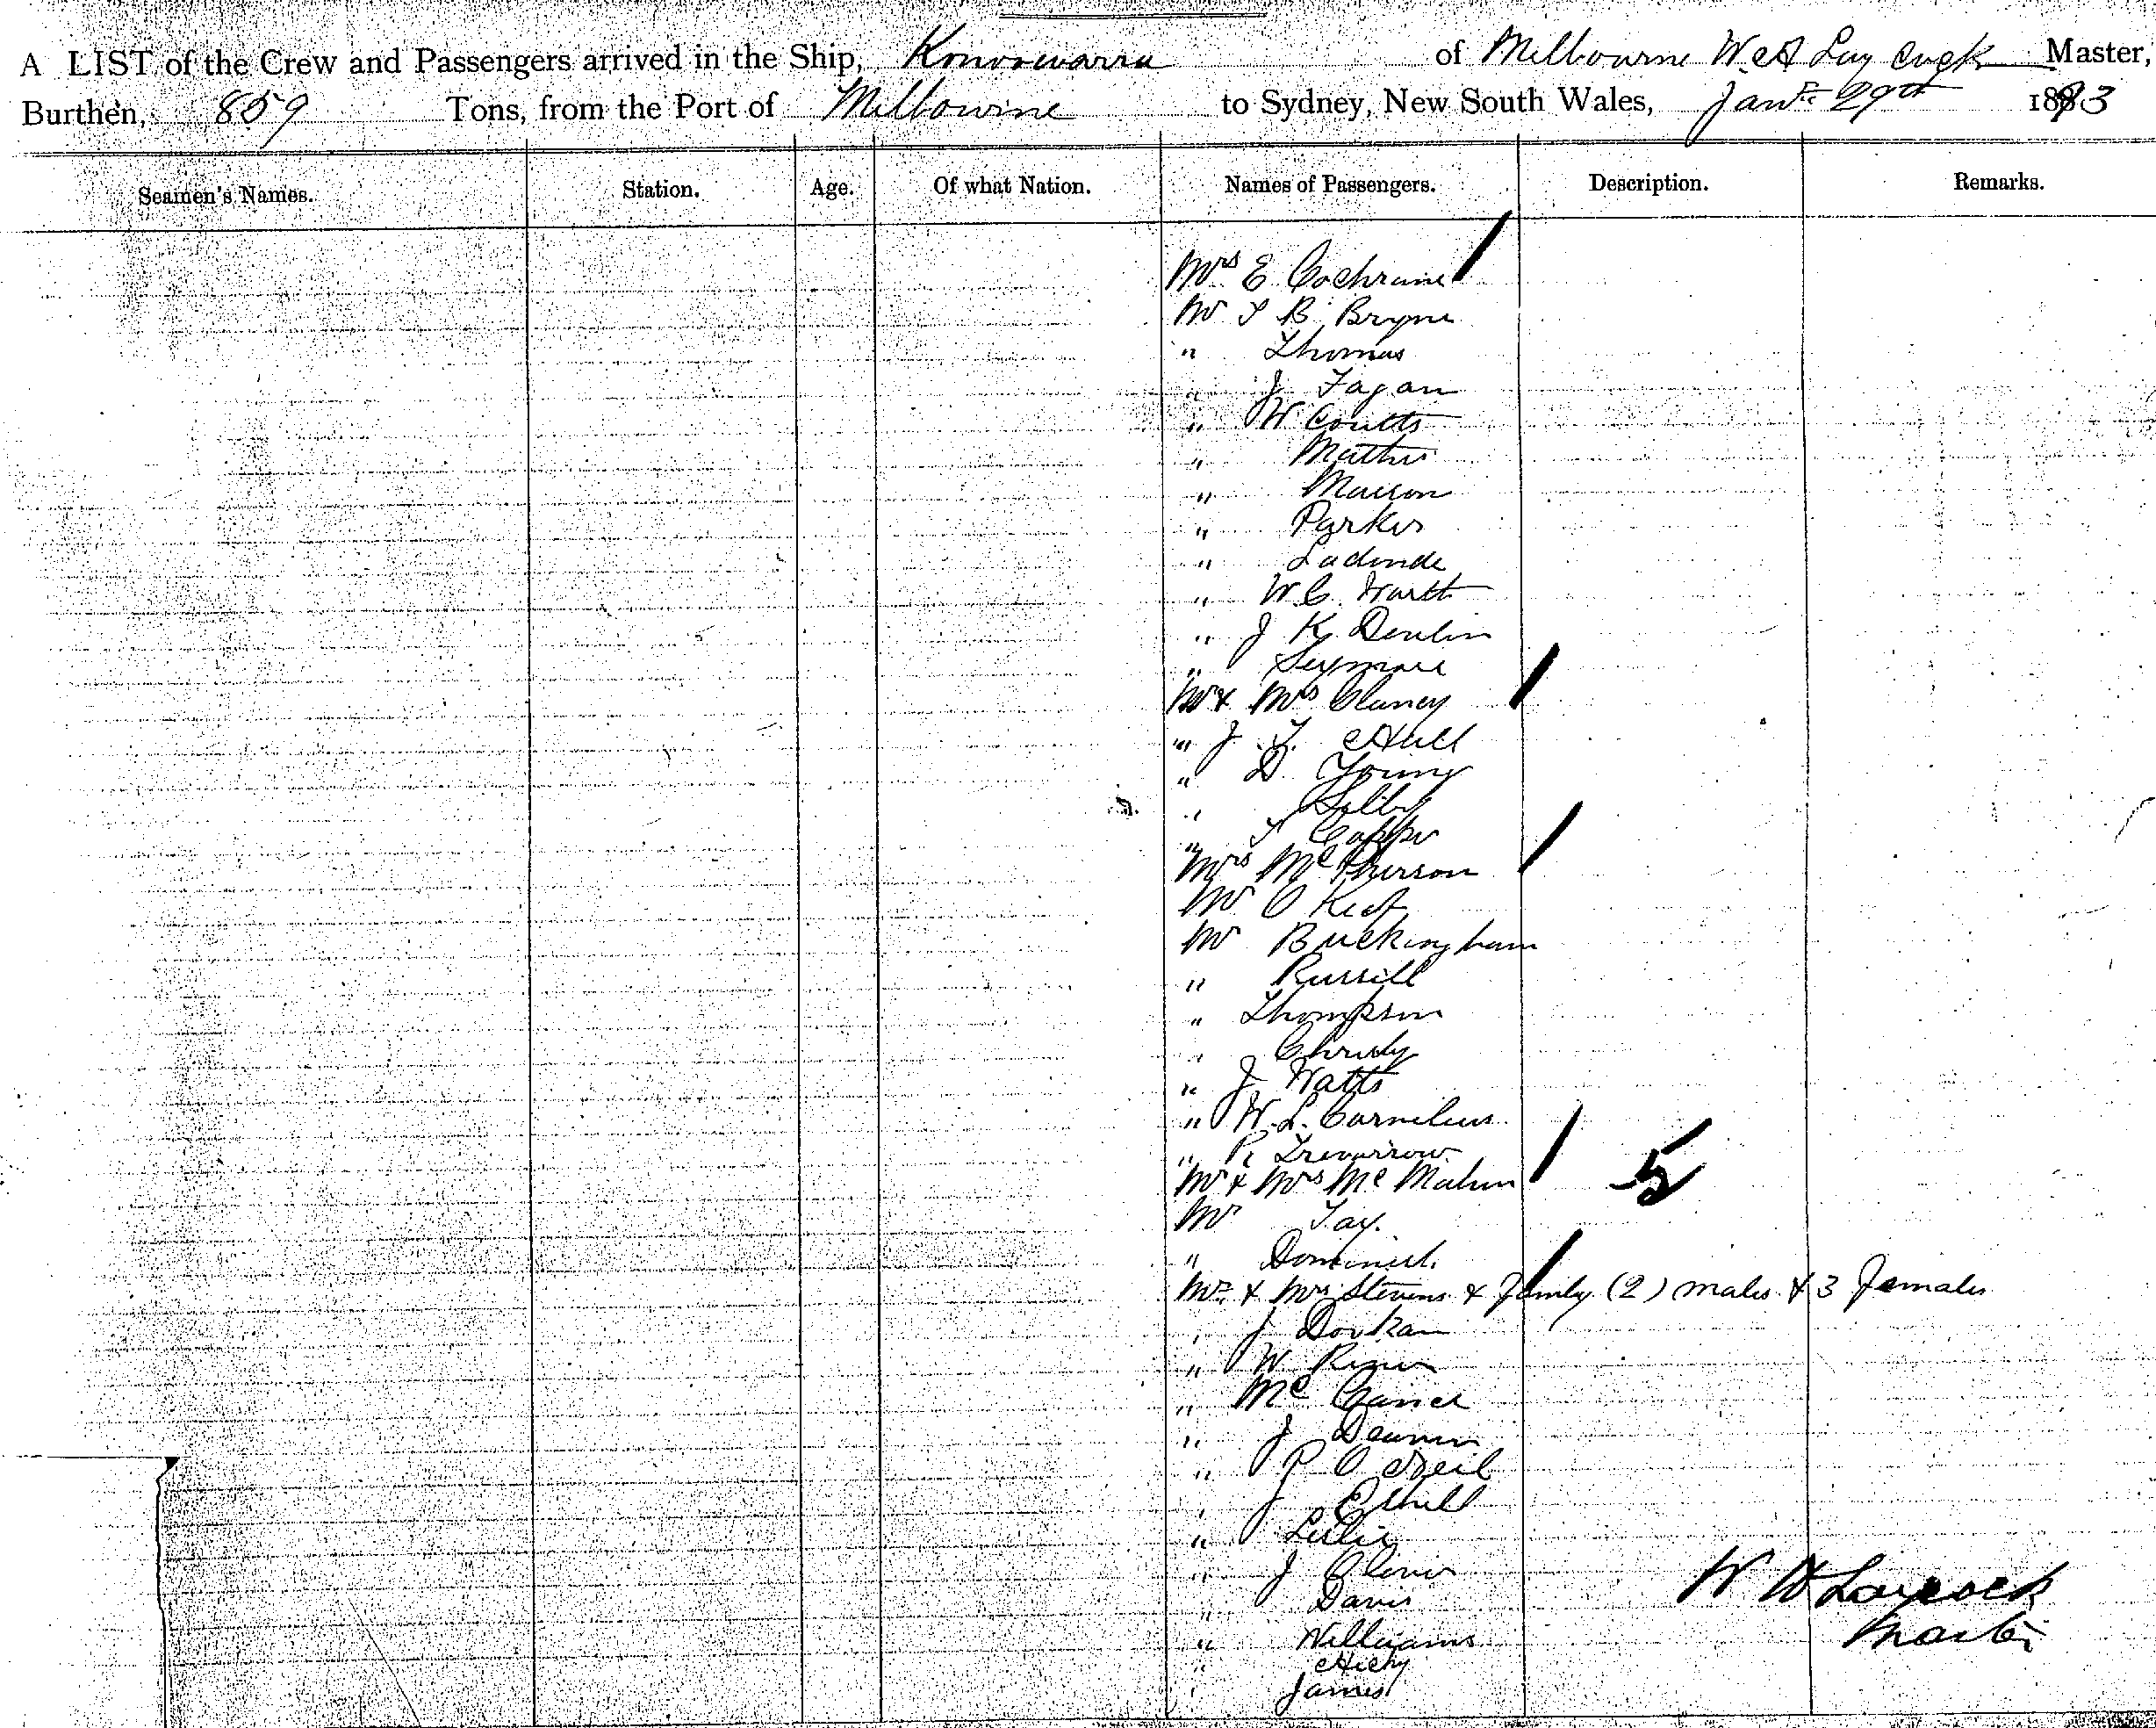 A LIST of the Crew and Passengers arrived in the Ship, Konoowarra of Melbourne W. H Lay cock Master,
Burthen, 859 Tons, from the Port of Melbourne to Sydney, New South Wales, Jany 29th 1893
Seamen's Names. Station. Age. Of what Nation. Names of Passengers. Description. Remarks.
Mrs E Cochrane
Mr T B Bryne
" Thomas
" J Fagan
" W Coutts
" Mather
" Parker
" W. C.
" J K Devlin
" Seymour
Mr & Mrs Clancy
" J. T. Hall
" D. Young
" Selby
" T Copper
Mrs McPherson
Mr O Keef
Mr Buckingham
" Russell
" Thompson
" Christy
" J Watts
" W. L. Cornelius
" R Trevarrow
Mr & Mrs Mc Mahon 5
Mr Fay.
" Dominick
Mr & Mrs Stevens & family (2) males & 3 females
" J
" W
" Mc
" J
" P O Neil
" J Ethell
" Leslie
" J Oliver
W H Laycock
" Davis
Master
" Williams
" Hicky
" James